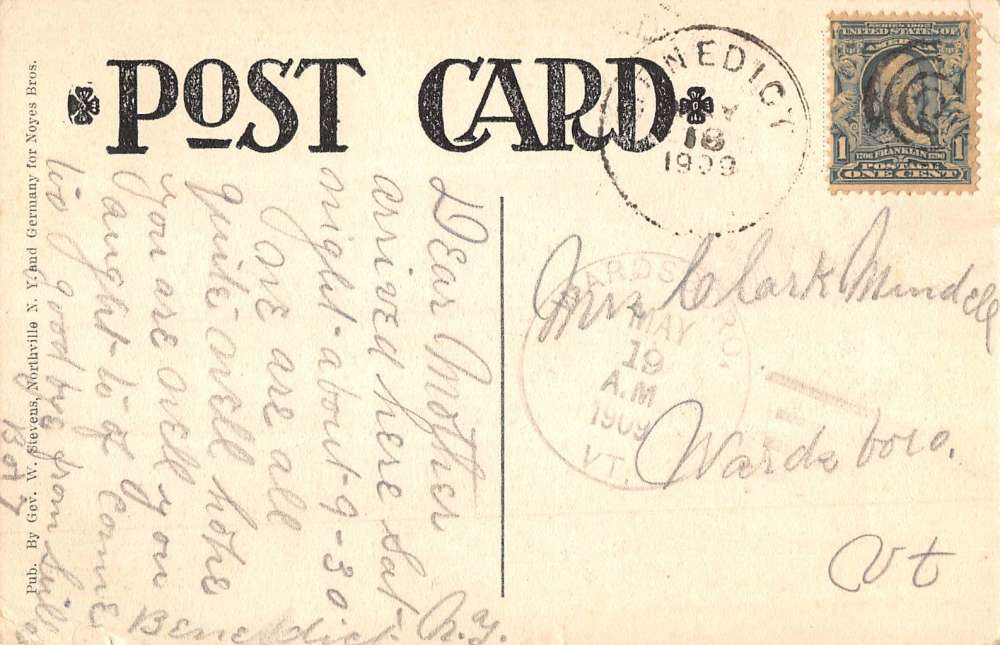 POST CARD
BENEDICT
18
1909
SERIES 1902
UNITED STATES OF
AMERICA
1706 FRANKLIN 1790
1 POSTAGE 1
ONE CENT
WARDSBORO.
MAY
19
A.M
1909
VT.
Mrs Clark
Wardsboro.
Vt
Dear Mother
arrived here Sat.
night about 9-30
we are all
quite well hope
you are well you
aught to of Come
too good bye from
Box 7
Benedict N.Y.
Pub. By Gov. W. Stevens, Northville N. Y. and Germany for Noyes Bros.